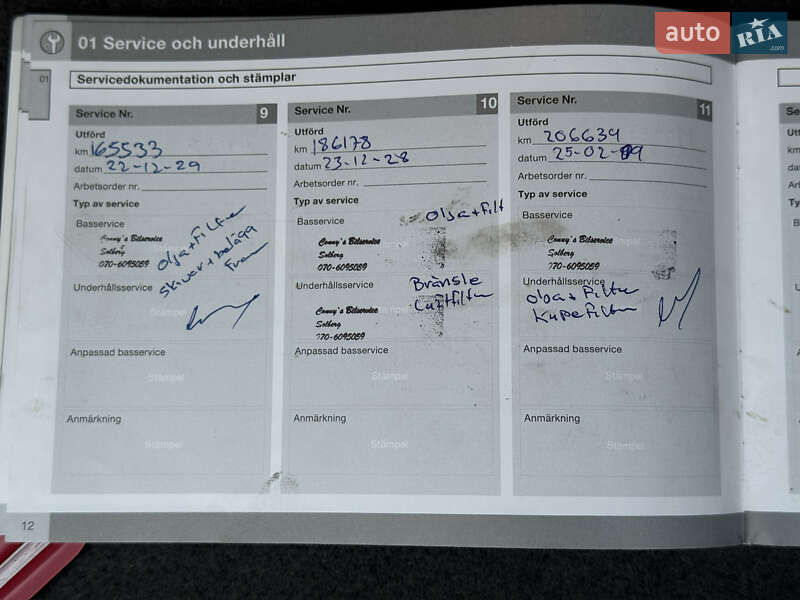 auto RIA .com
01 Service och underhåll
01
Servicedokumentation och stämplar
Service Nr. 9
Utförd
km 165533
datum 22-12-29
Arbetsorder nr.
Typ av service
Basservice
Conny's Bilservice
Solberg
070-6095059
Olja + Filter
Skivor + belägg
Fram
Underhållsservice
Stämpel
Anpassad basservice
Stämpel
Anmärkning
Stämpel
Service Nr. 10
Utförd
km 186178
datum 23-12-28
Arbetsorder nr.
Typ av service
Basservice
Olja + Filt
Conny's Bilservice
Solberg
070-6095059
Underhållsservice
Bränsle
Luftfilter
Conny's Bilservice
Solberg
070-6095059
Anpassad basservice
Stämpel
Anmärkning
Stämpel
Service Nr. 11
Utförd
km 206639
datum 25-02-
Arbetsorder nr.
Typ av service
Basservice
Conny's Bilservice
Solberg
070-6095059
Underhållsservice
Olja + Filter
Kupefilter
Anpassad basservice
Stämpel
Anmärkning
Stämpel
12